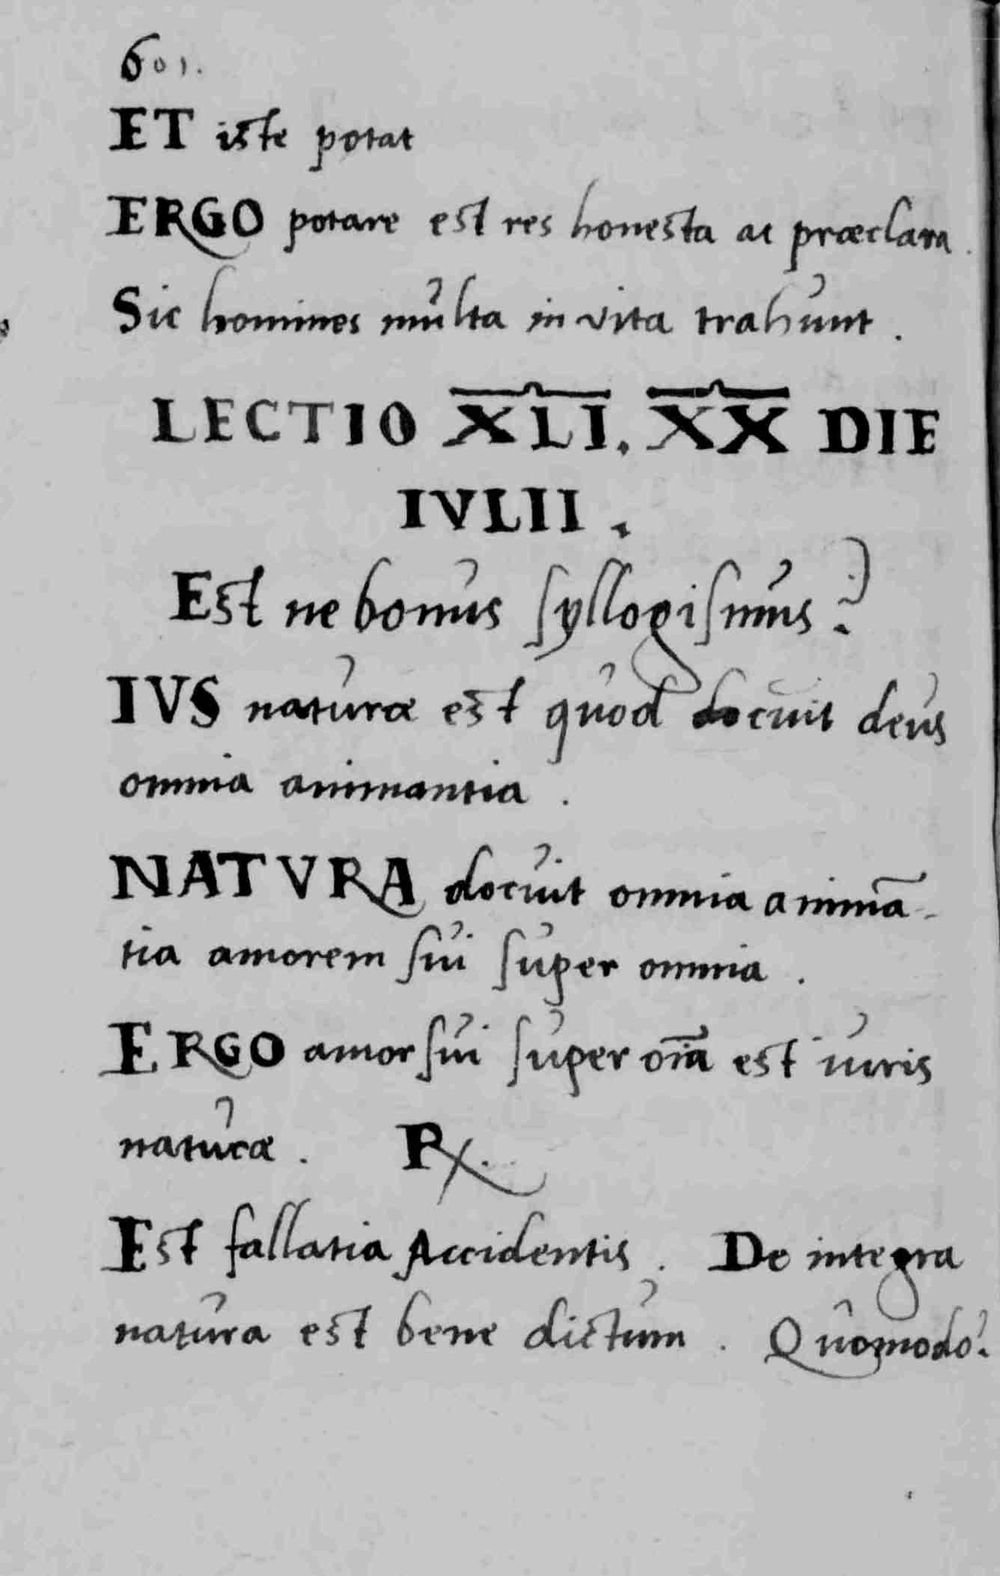 601.
ET iste potat
ERGO potare est res honesta ac præclara.
Sic homines multa in vita trahunt.
LECTIO XLI. XX DIE
IVLII.
Est ne bonus syllogismus?
IVS naturæ est quod docuit deus
omnia animantia.
NATVRA docuit omnia animā-
tia amorem sui super omnia.
ERGO amor sui super oīa est iuris
naturæ. ℞.
Est fallatia Accidentis. De integra
natura est bene dictum. Quomodo?